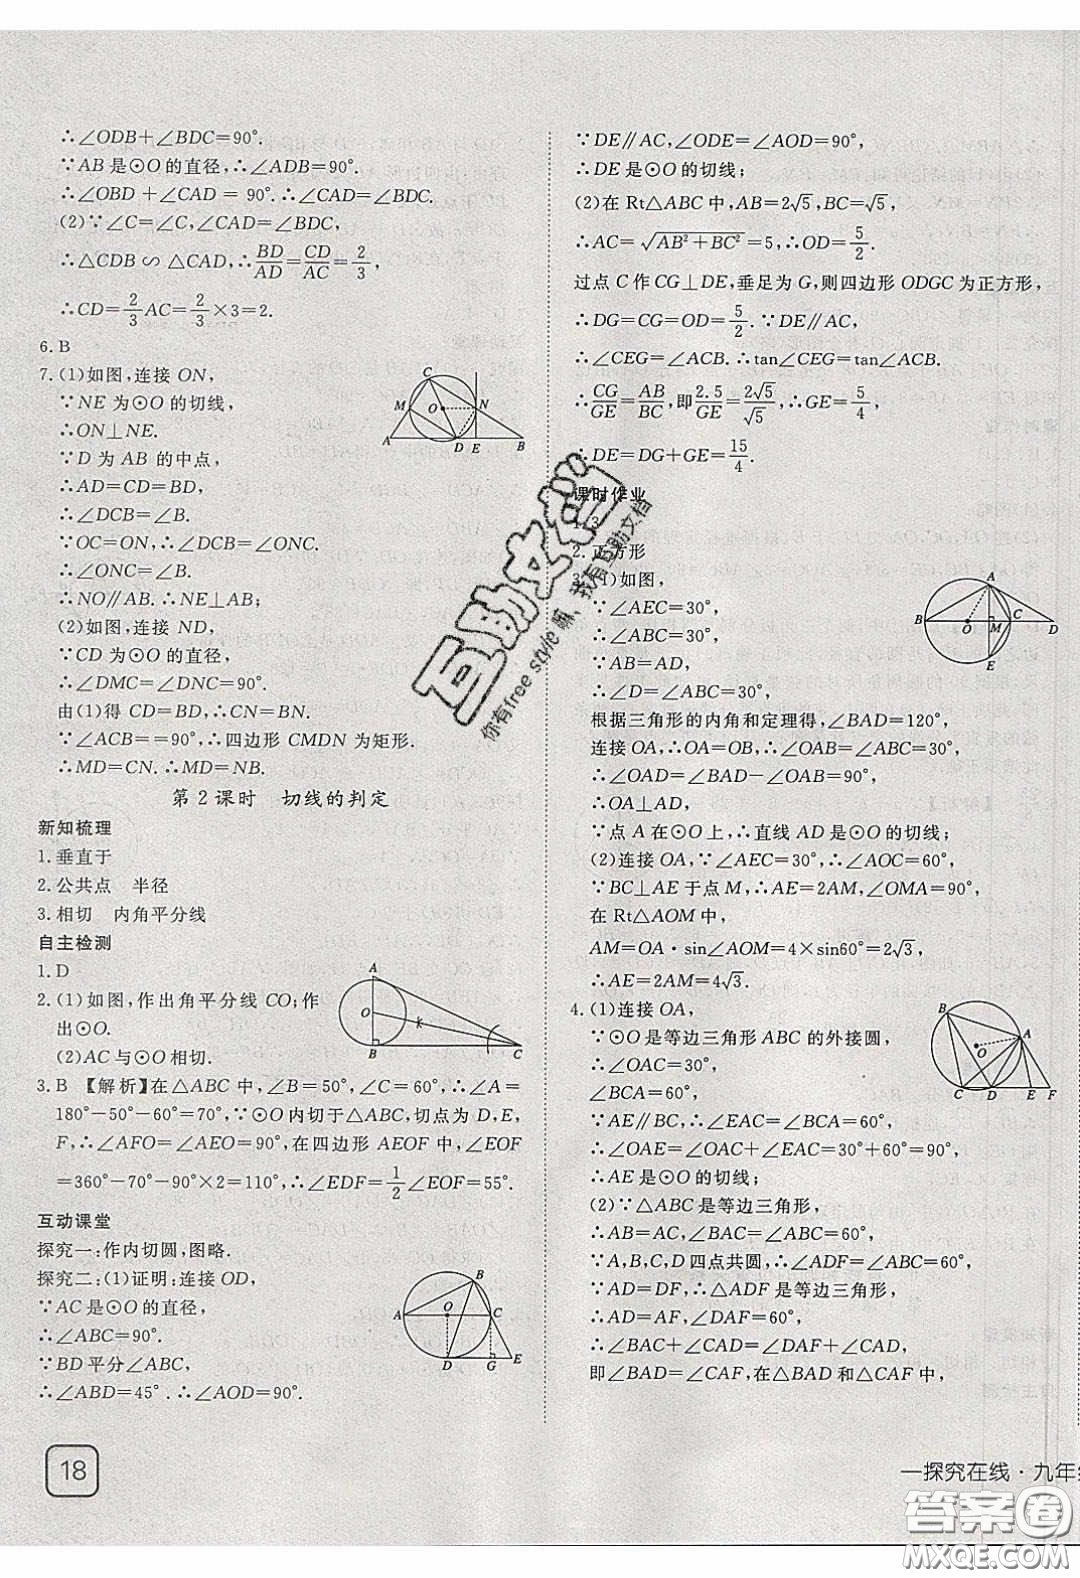 ∴∠ODB+∠BDC=90°.
∵AB是⊙O的直径,∴∠ADB=90°.
∴∠OBD+∠CAD=90°.∴∠CAD=∠BDC.
(2)∵∠C=∠C,∠CAD=∠BDC,
∴△CDB∽△CAD,∴BD/AD=CD/AC=2/3,
∴CD=2/3AC=2/3×3=2.
6.B
7.(1)如图,连接ON,
∵NE为⊙O的切线,
∴ON⊥NE.
∵D为AB的中点,
∴AD=CD=BD,
∴∠DCB=∠B.
∵OC=ON,∴∠DCB=∠ONC.
∴∠ONC=∠B.
∴NO∥AB.∴NE⊥AB;
(2)如图,连接ND,
∵CD为⊙O的直径,
∴∠DMC=∠DNC=90°.
由(1)得CD=BD,∴CN=BN.
∵∠ACB==90°,∴四边形CMDN为矩形.
∴MD=CN.∴MD=NB.
C
M
O
N
A
D
E
B
第2课时 切线的判定
新知梳理
1.垂直于
2.公共点 半径
3.相切 内角平分线
自主检测
1.D
2.(1)如图,作出角平分线CO;作
出⊙O.
(2)AC与⊙O相切.
A
O
k
B
C
3.B 【解析】在△ABC中,∠B=50°,∠C=60°,∴∠A=
180°-50°-60°=70°,∵⊙O内切于△ABC,切点为D,E,
F,∴∠AFO=∠AEO=90°,在四边形AEOF中,∠EOF
=360°-70°-90°×2=110°,∴∠EDF=1/2∠EOF=55°.
互动课堂
探究一:作内切圆,图略.
探究二:(1)证明:连接OD,
∵AC是⊙O的直径,
∴∠ABC=90°.
∵BD平分∠ABC,
∴∠ABD=45°.∴∠AOD=90°.
B
A
O
C
D
G
E
18
∵DE∥AC,∴∠ODE=∠AOD=90°.
∴DE是⊙O的切线;
(2)在Rt△ABC中,AB=2√5,BC=√5,
∴AC=√(AB²+BC²)=5,∴OD=5/2.
过点C作CG⊥DE,垂足为G,则四边形ODGC为正方形,
∴DG=CG=OD=5/2.∵DE∥AC,
∴∠CEG=∠ACB.∴tan∠CEG=tan∠ACB.
∴CG/GE=AB/BC,即2.5/GE=2√5/√5,∴GE=5/4,
∴DE=DG+GE=15/4.
课时作业
2.正方形
3.(1)如图,
∵∠AEC=30°,
∴∠ABC=30°,
∵AB=AD,
∴∠D=∠ABC=30°,
根据三角形的内角和定理得,∠BAD=120°,
连接OA,∴OA=OB,∴∠OAB=∠ABC=30°,
∴∠OAD=∠BAD-∠OAB=90°,
∴OA⊥AD,
∵点A在⊙O上,∴直线AD是⊙O的切线;
(2)连接OA,∵∠AEC=30°,∴∠AOC=60°,
∵BC⊥AE于点M,∴AE=2AM,∠OMA=90°,
在Rt△AOM中,
AM=OA·sin∠AOM=4×sin60°=2√3,
∴AE=2AM=4√3.
A
B
O
M
C
D
E
4.(1)连接OA,
∵⊙O是等边三角形ABC的外接圆,
∴∠OAC=30°,
∠BCA=60°,
∵AE∥BC,∴∠EAC=∠BCA=60°,
∴∠OAE=∠OAC+∠EAC=30°+60°=90°,
∴AE是⊙O的切线;
(2)∵△ABC是等边三角形,
∴AB=AC,∠BAC=∠ABC=60°,
∵A,B,C,D四点共圆,∴∠ADF=∠ABC=60°,
∵AD=DF,∴△ADF是等边三角形,
∴AD=AF,∠DAF=60°,
∴∠BAC+∠CAD=∠DAF+∠CAD,
即∠BAD=∠CAF,在△BAD和△CAF中,
B
A
O
C
D
E
F
探究在线·九年
互助文档
你有free style嘛、我有互助文档
答案圈
MXQE.COM